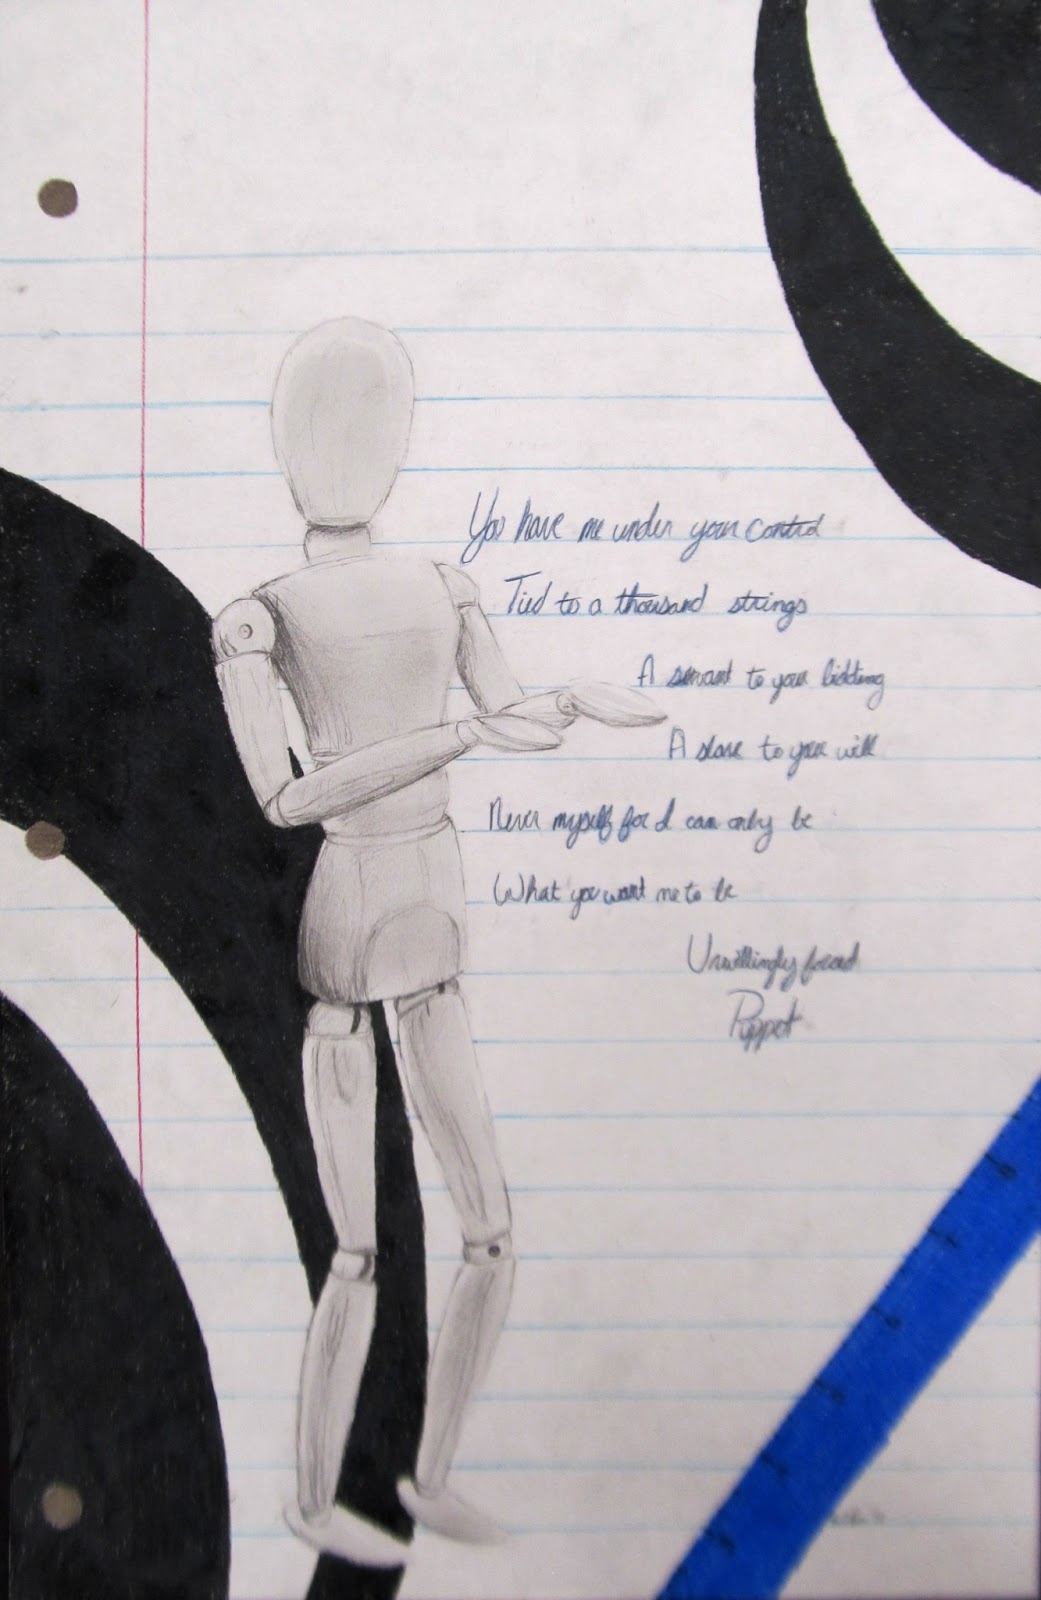 You have me under your control
Tied to a thousand strings
A servant to your bidding
A slave to your will
Never myself for I can only be
What you want me to be
Unwillingly forced
Puppet